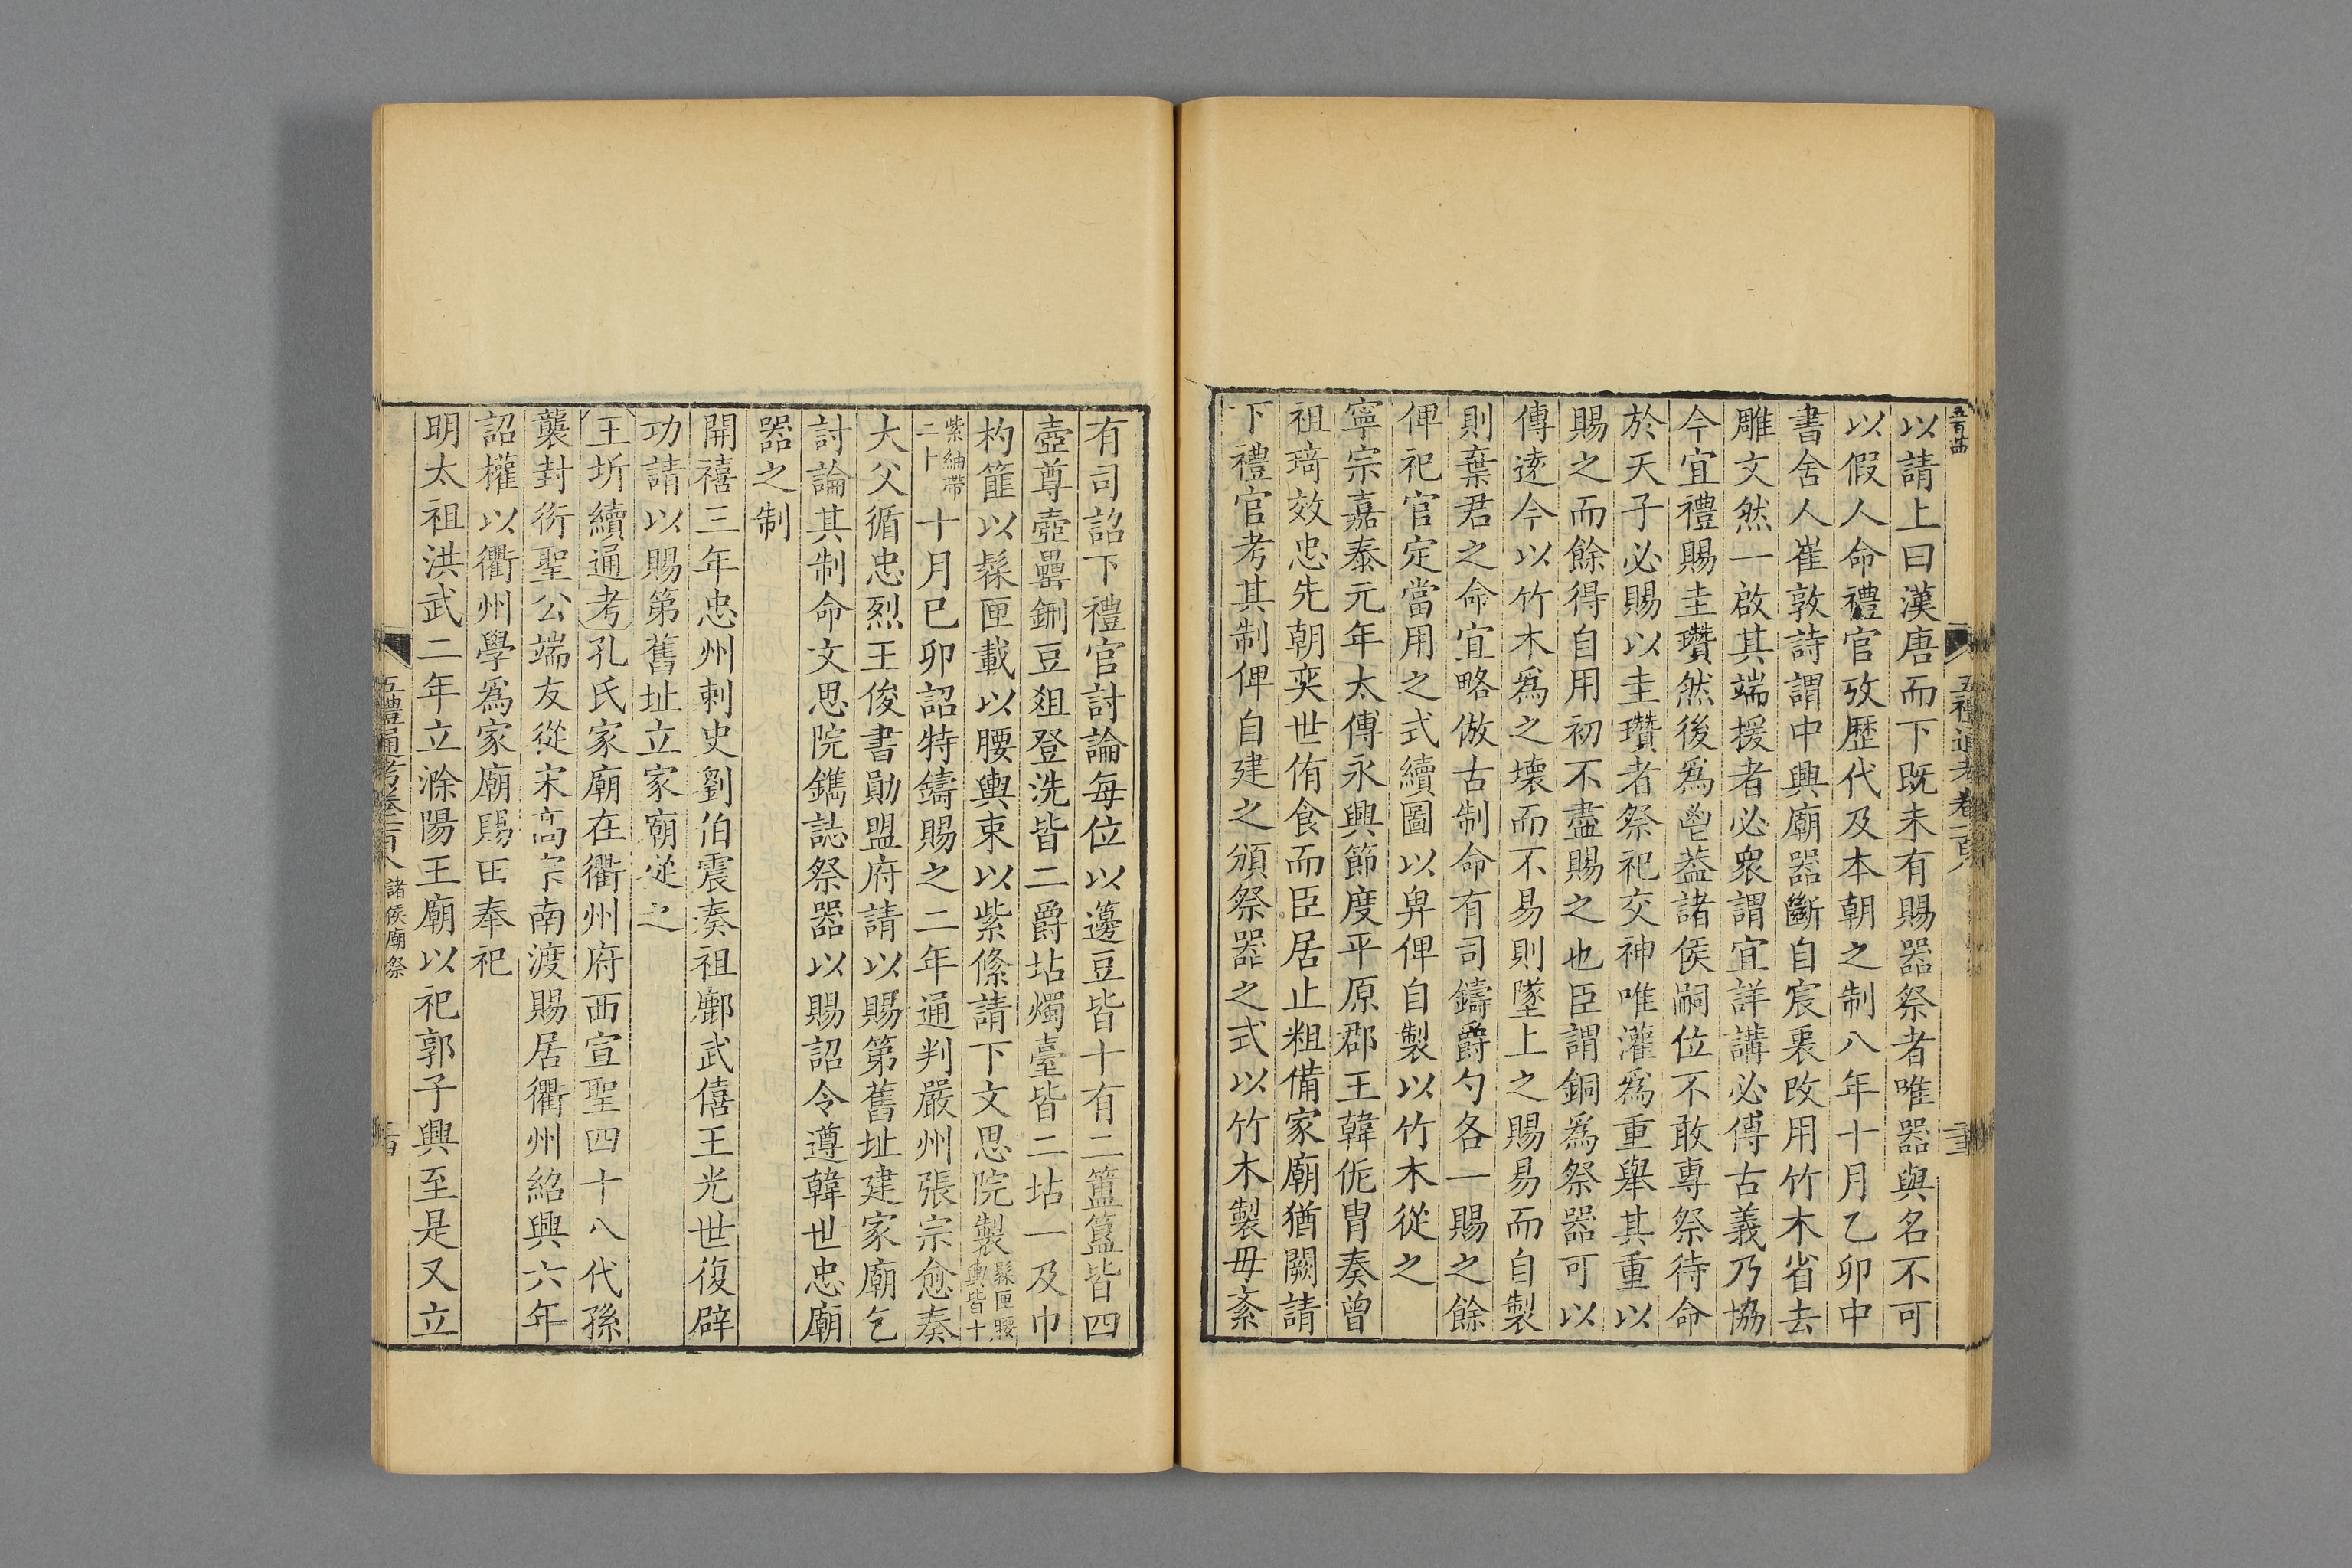 以請上曰漢唐而下既未有賜器祭者唯器與名不可
以假人命禮官攷歷代及本朝之制八年十月乙卯中
書舍人崔敦詩謂中興廟器斷自宸衷改用竹木省去
雕文然一啟其端援者必衆謂宜詳講必傅古義乃協
今宜禮賜圭瓚然後爲鬯葢諸侯嗣位不敢專祭待命
於天子必賜以圭瓚者祭祀交神唯灌爲重舉其重以
賜之而餘得自用初不盡賜之也臣謂銅爲祭器可以
傳逺今以竹木爲之壞而不易則墜上之賜易而自製
則棄君之命宜略倣古制命有司鑄爵勺各一賜之餘
俾祀官定當用之式續圖以畀俾自製以竹木從之
寧宗嘉泰元年太傅永興節度平原郡王韓侂胄奏曾
祖琦效忠先朝奕世侑食而臣居止粗備家廟猶闕請
下禮官考其制俾自建之頒祭器之式以竹木製毋紊
有司詔下禮官討論每位以籩豆皆十有二簠簋皆四
壺尊壺罍鉶豆爼登洗皆二爵坫燭臺皆二坫一及巾
杓篚以髹匣載以腰輿束以紫絛請下文思院製髹匣腰輿皆十
紫紬帶二十十月已卯詔特鑄賜之二年通判嚴州張宗愈奏
大父循忠烈王俊書勛盟府請以賜第舊址建家廟乞
討論其制命文思院鐫誌祭器以賜詔令遵韓世忠廟
器之制
開禧三年忠州刺史劉伯震奏祖鄜武僖王光世復辟
功請以賜第舊址立家廟從之
王圻續通考孔氏家廟在衢州府西宣聖四十八代孫
襲封衍聖公端友從宋高宗南渡賜居衢州紹興六年
詔權以衢州學爲家廟賜田奉祀
明太祖洪武二年立滁陽王廟以祀郭子興至是又立
五禮通考卷一百八 諸侯廟祭